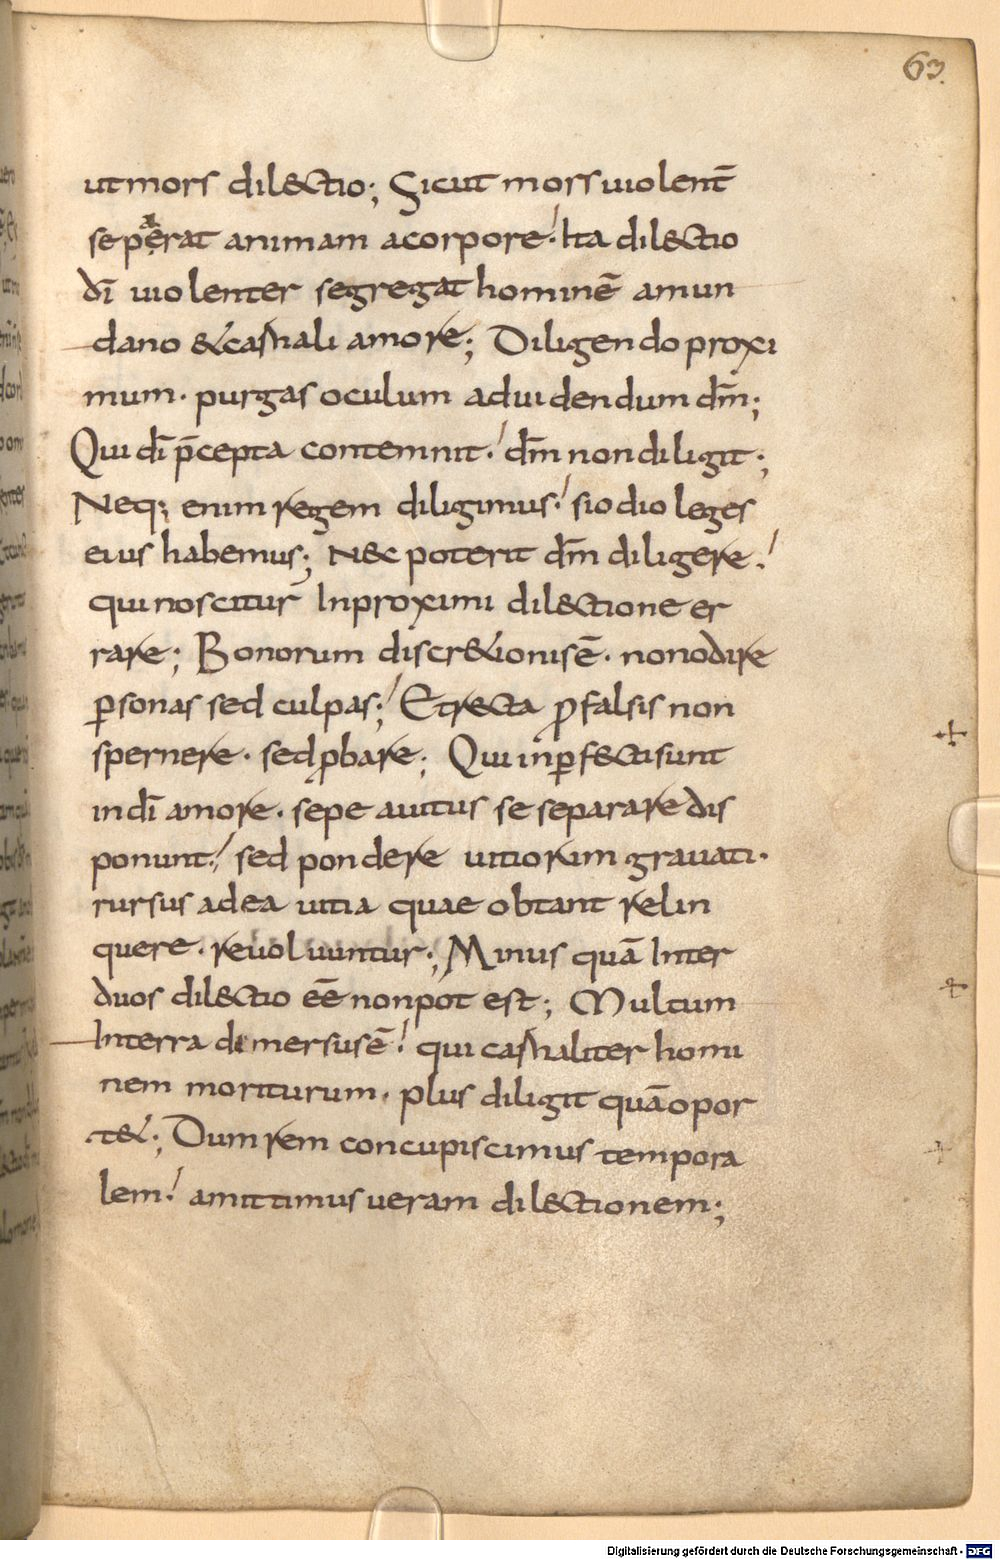 63.
ut mors dilectio; Sicut mors uiolent̄
seperat animam a corpore. Ita dilectio
dī uiolenter segregat hominē amun
dano & carnali amore; Diligendo proxi
mum. purgas oculum aduidendum dm̄;
Qui dī p̄cepta contemnit. dm̄ non diligit;
Neq; enim regem diligimus. si odio leges
eius habemus; Nec poterit dm̄ diligere.
qui noscitur Inproximi dilectione er
rare; Bonorum discr&ionis ē. non odire
ꝑsonas sed culpas; Et recta ꝓ falsis non
spernere. sed ꝓbare; Qui inꝑfecti sunt
in dī amore. sepe a uitus se separare dis
ponunt. sed pondere uitiorum grauati.
rursus ad ea uitia quae obtant relin
quere. reuoluuntur; Minus quā Inter
duos dilectio eē non pot est; Multum
Interra demersus ē. qui carnaliter homi
nem moriturum. plus diligit quā opor
t&; Dum rem concupiscimus tempora
lem. amittimus ueram dilectionem;
Digitalisierung gefördert durch die Deutsche Forschungsgemeinschaft - DFG